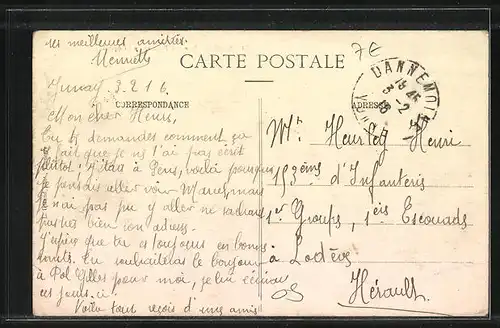 mes meilleures amitiés.
Henriette
7E
CARTE POSTALE
3.2.16
CORRESPONDANCE
ADRESSE
DANNEMOINE
Mon cher Henri,
Tu demandes comment ça
fait que je ne t'ai pas écrit
plutôt. J'étais à Sens, voilà pourquoi
je pensais aller voir
je n'ai pas pu y aller ne sachant
pas très bien son adress.
J'espère que tu es toujours en bonne
santé. Tu souhaiteras le bonjour
à Pol Gilles pour moi, je lui
ces jours-ci.
Voilà tout reçois d'une amie
Mr. Henri
d'Infanterie
1er Groupe, 1eis Escouade
à Lodève
Hérault.